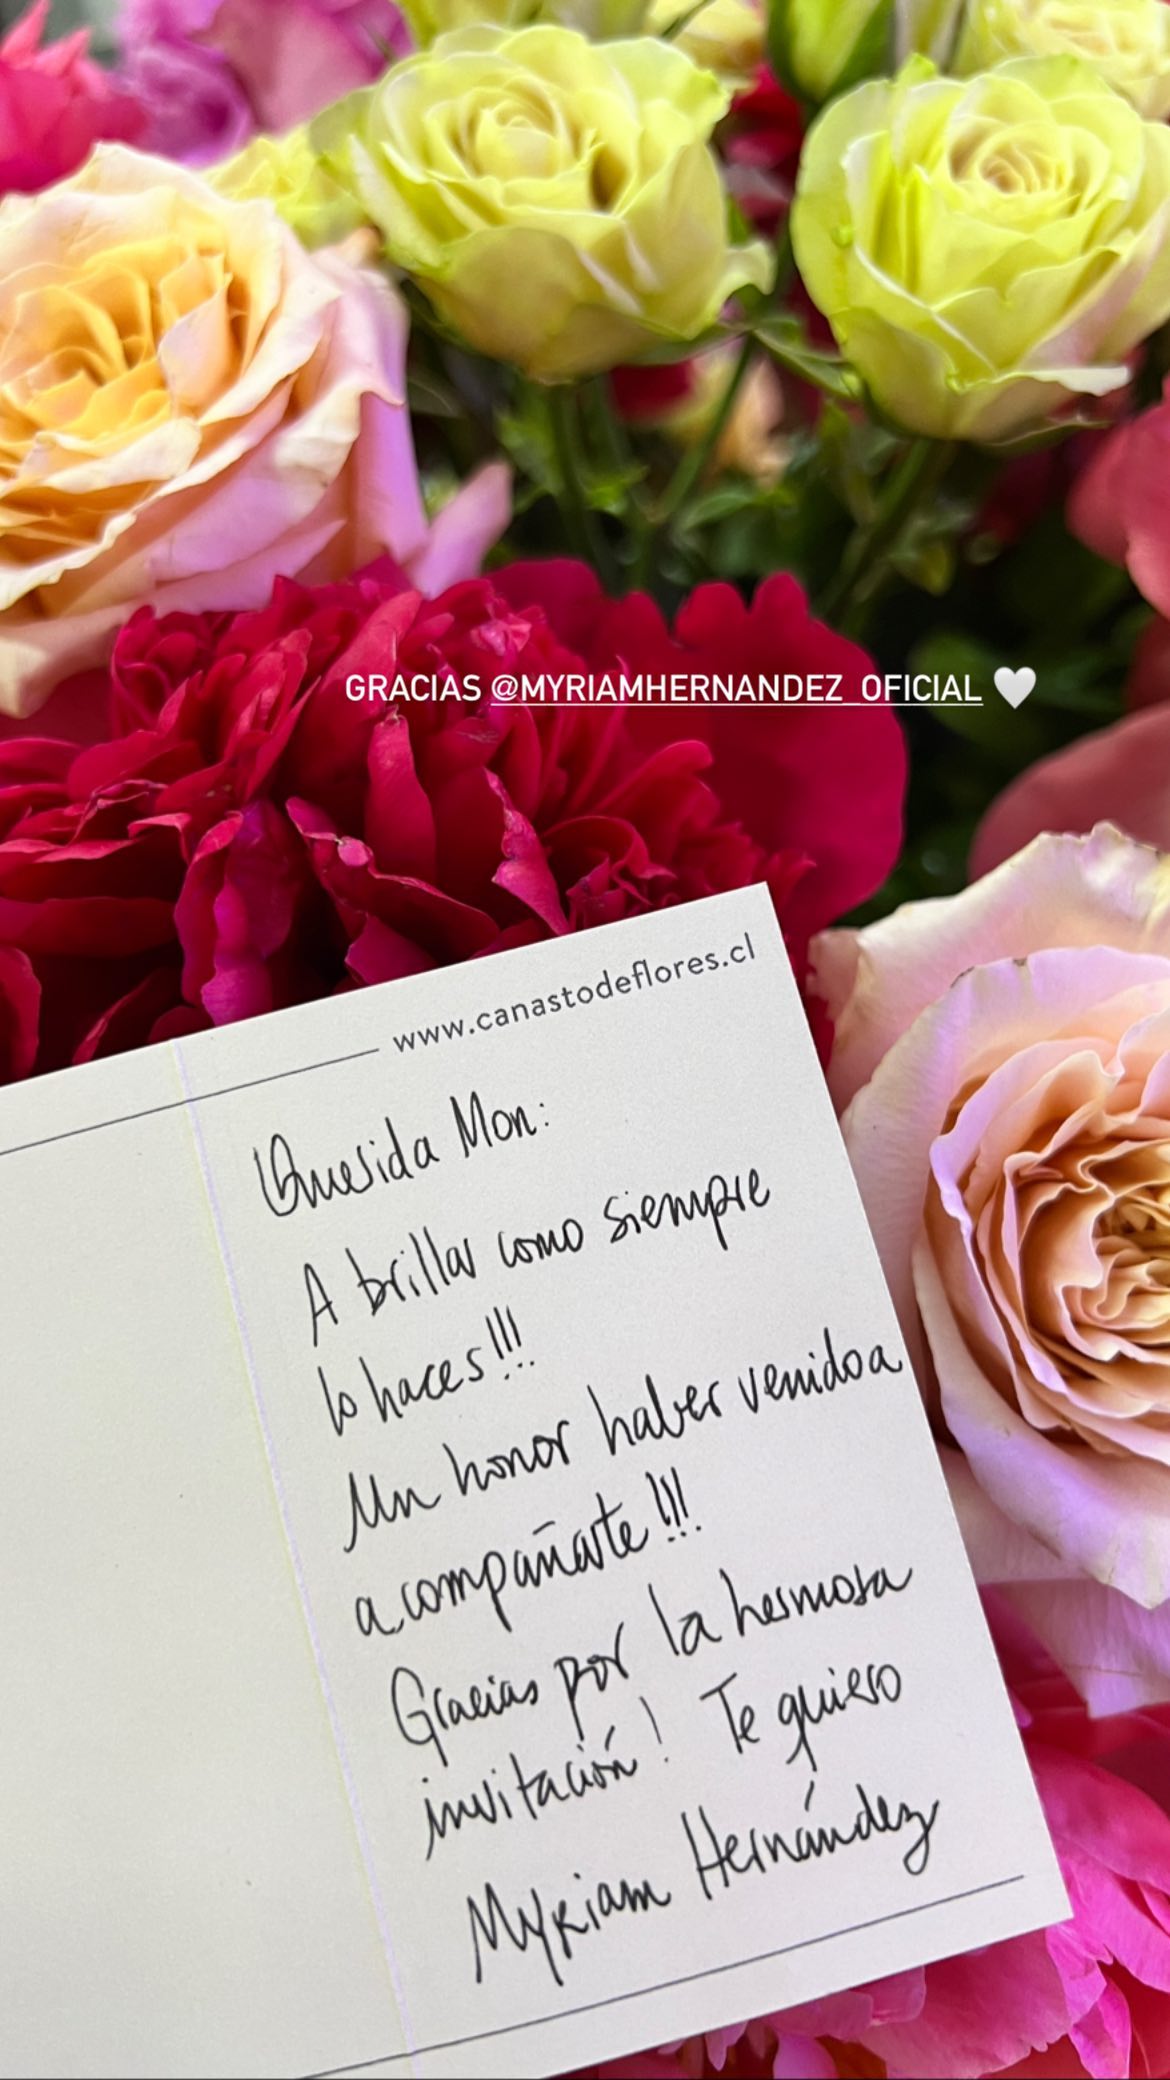 GRACIAS @MYRIAMHERNANDEZ_OFICIAL 🤍
www.canastodeflores.cl
Querida Mon:
A brillar como siempre
lo haces!!!
Un honor haber venido a
acompañarte!!!
Gracias por la hermosa
invitación! Te quiero
Myriam Hernández